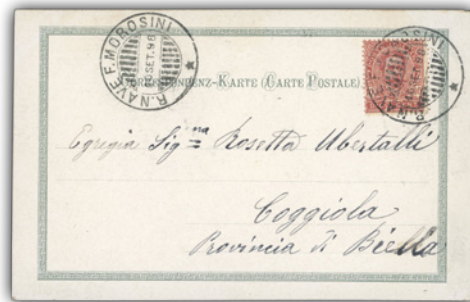 R. NAVE F. MOROSINI
SET. 98
R. NAVE F. MOROSINI
CORRESPONDENZ-KARTE (CARTE POSTALE)
Egregia Sig.na Rosetta Ubertalli
Coggiola
Provincia di Biella